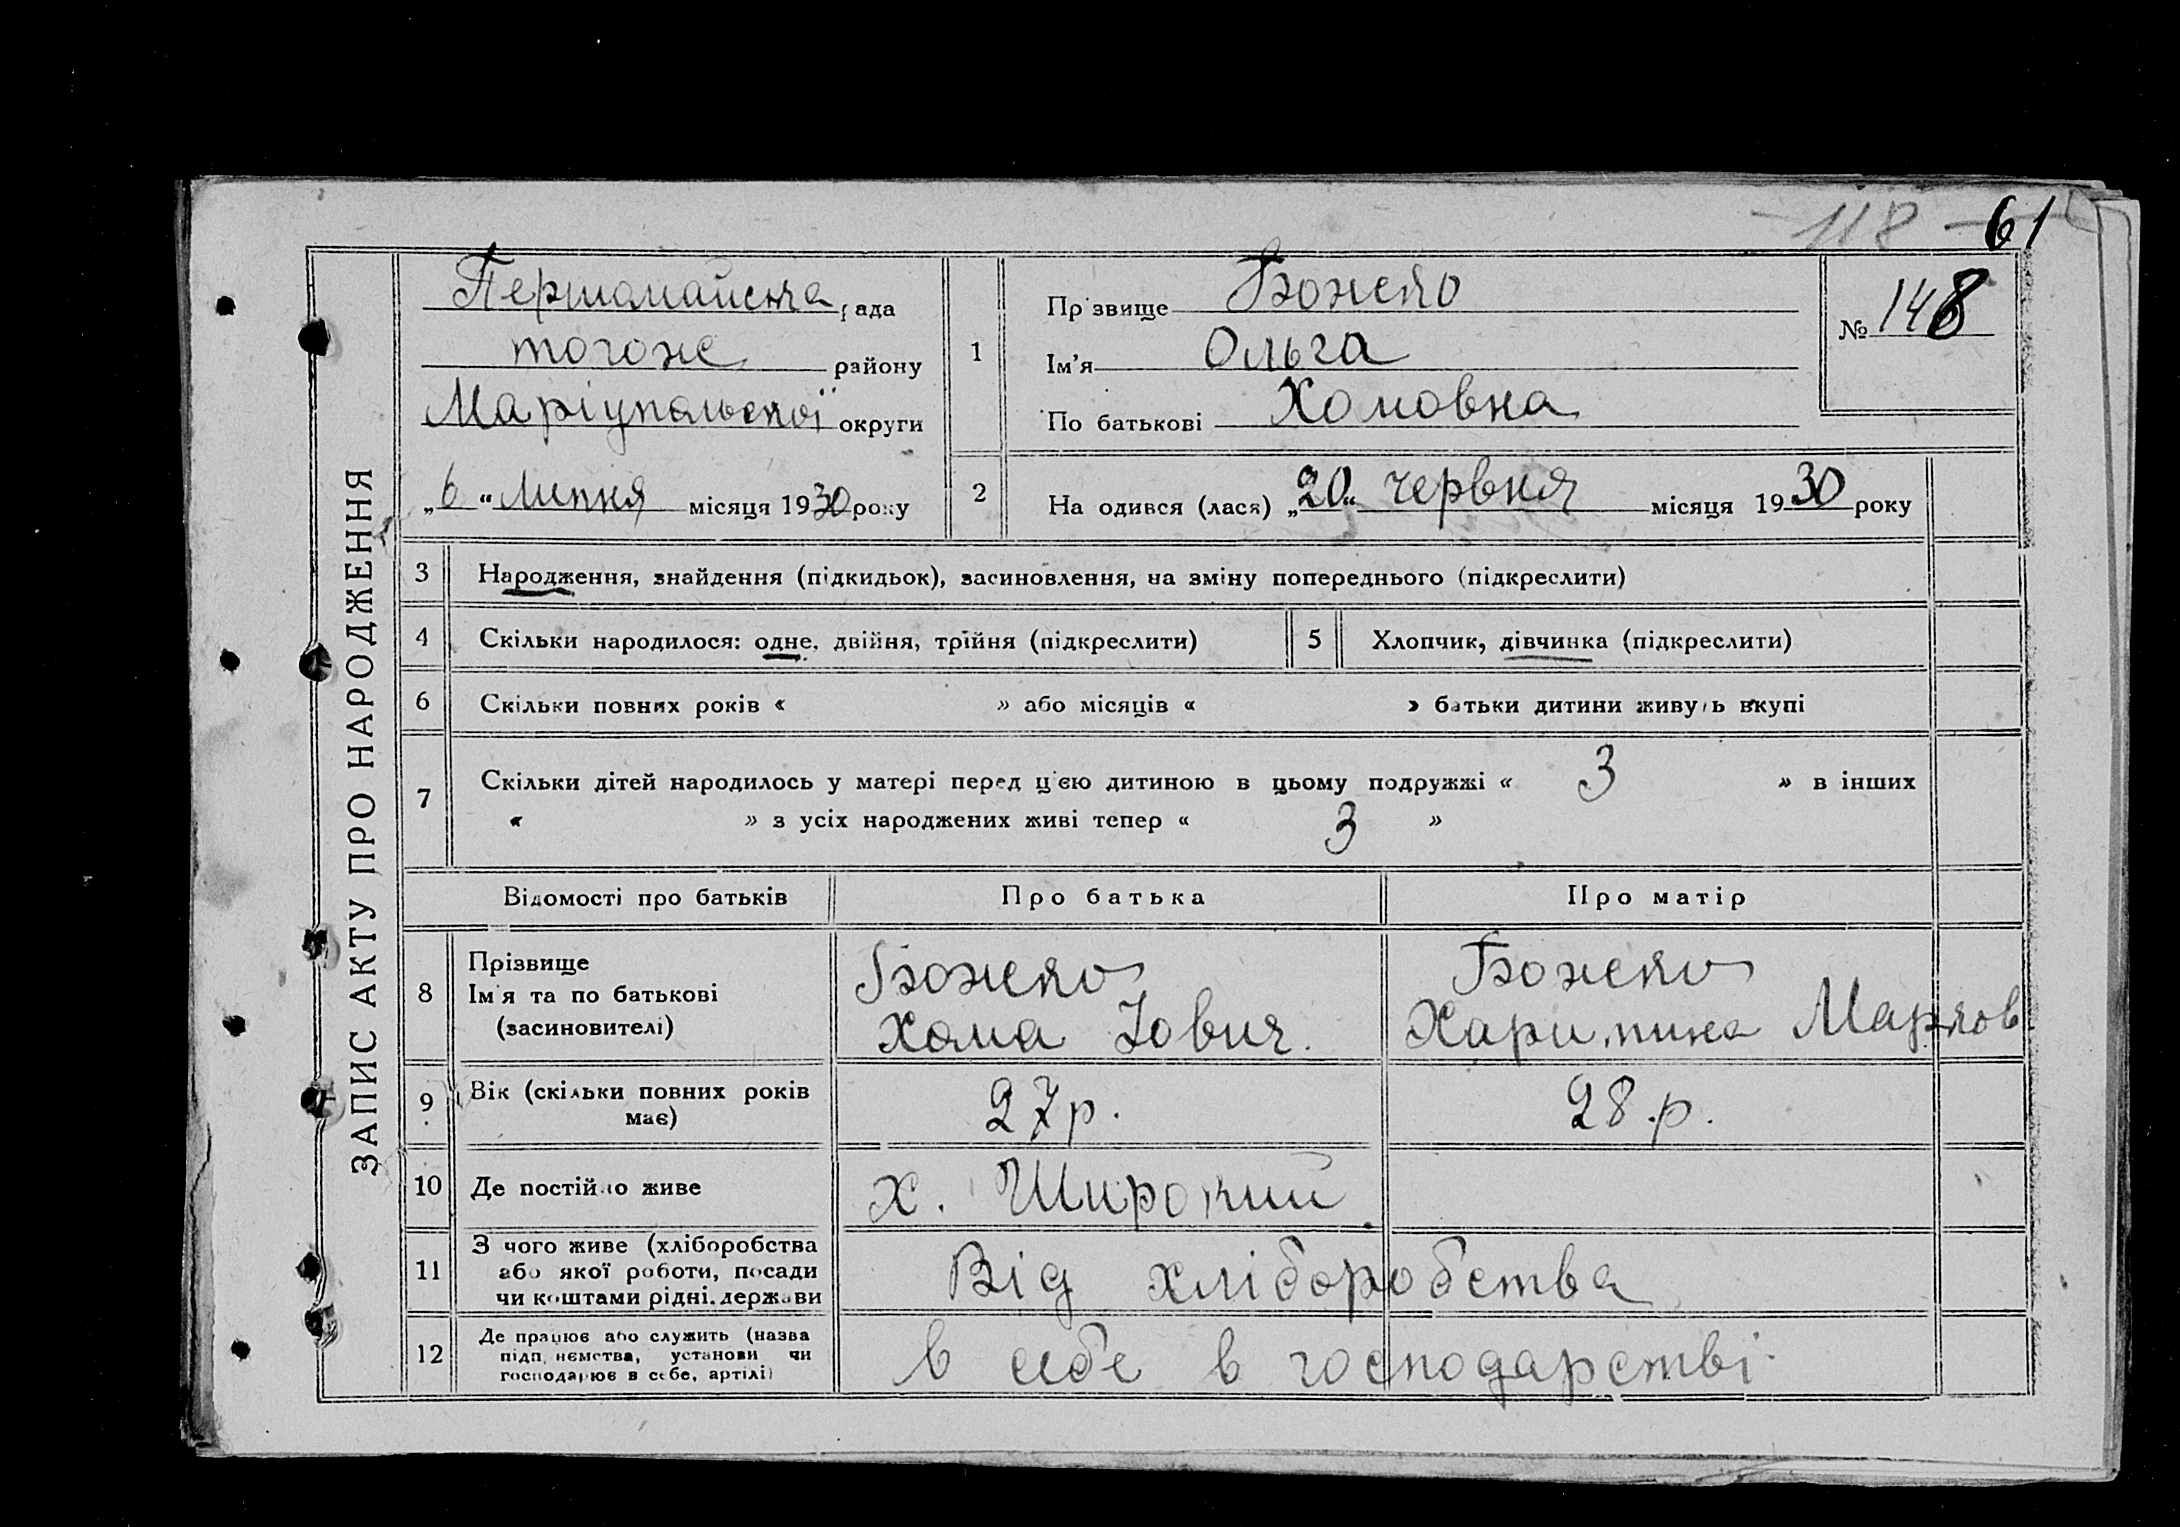 118 - 61
ЗАПИС АКТУ ПРО НАРОДЖЕННЯ
Першомайська рада
тогоже району
Маріупольської округи
„6“ Липня місяця 1930 року
1
Прізвище Божко
Ім’я Ольга
По батькові Хомовна
№ 148
2
Народився (лася) „20“ червня місяця 1930 року
3 Народження, знайдення (підкидьок), засиновлення, на зміну попереднього (підкреслити)
4 Скільки народилося: одне, двійня, трійня (підкреслити) 5 Хлопчик, дівчинка (підкреслити)
6 Скільки повних років « » або місяців « » батьки дитини живуть вкупі
7 Скільки дітей народилось у матері перед ц’єю дитиною в цьому подружжі « 3 » в інших
« » з усіх народжених живі тепер « 3 »
Відомості про батьків Про батька Про матір
8 Прізвище
Ім’я та по батькові
(засиновителі)
Божко
Хома Іович.
Божко
Харитина Марков
9 Вік (скільки повних років
має)
27 р. 28.р.
10 Де постійно живе х. Широкий.
11 З чого живе (хліборобства
або якої роботи, посади
чи коштами рідні, держави
Від хліборобства
12 Де працює або служить (назва
підприємства, установи чи
господарює в себе, артілі)
в себе в господарстві.